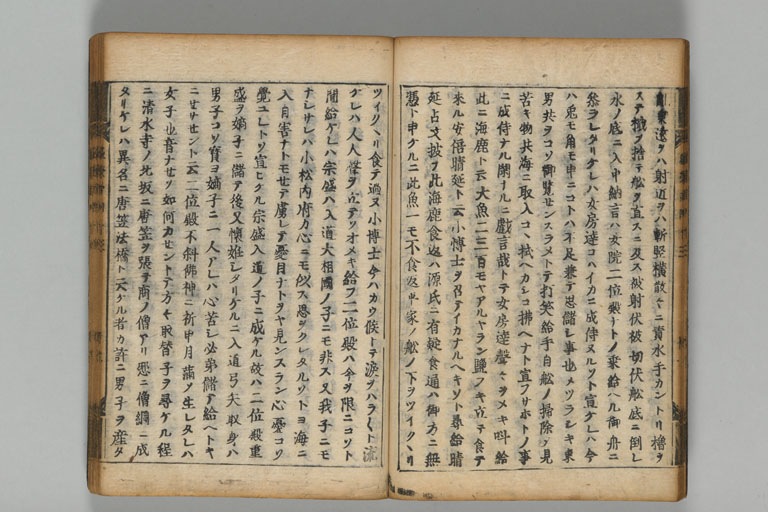 東遠ヲハ射近ヲハ斬竪横散々ニ責水手カントリ櫓ヲ
ステ梶ヲ捨テ舩ヲ直スニ及ス被射伏被切伏舩底ニ倒レ
水ノ底ニ入中納言ハ女院二位殿ナトノ乗給ヘル御舟ニ
参ラレタリケレハ女房達コハイカニ成侍ヌルソト宣ケレハ今
ハ兎モ角モ申ニコトハ不足兼テ思儲シ事也メツラシキ東
男共ヲコソ御覧センスラメトテ打笑給手自舩ノ掃除シ見
苦キ物共海ニ取入コヽ拭ヘカシコ拂ヘナト宣フサホトノ事
ニ成侍ナルノ閑ナルニ戯言哉トテ女房達聲々ヲメキ叫給
此ニ海鹿ト云大魚二三百モヤアルヤラン塩フキ立テ食テ
来ル安倍晴延ト云小博士ヲ召テイカナルヘキソト尋給晴
延占文披テ此海鹿食返ハ源氏ニ有疑食通ハ御方ニ無
憑ト申ケルニ此魚一モ不食返平家ノ舩ノ下ヲツイクヽリ
ツイクヽリ食テ過ヌ小博士今ハカウ候トテ涙ヲハラ〱ト流
ケレハ人人聲ヲ立テヲメキ給フ二位殿ハ今ヲ限ニコソト
聞給ケレハ宗盛ハ入道大相國ノ子ニモ非ス又我子ニモ
ナシサレハ小松内府カ心ニモ似ス思ヲクレタルソトヨ海ニ
入自害ナトモセテ虜レテ憂目ナトヲヤ見ンスラン心憂コソ
覺ユレトソ宣ヒケル宗盛入道ノ子ニ成ケル故ハ二位殿重
盛ヲ嫡子ニ儲テ後又懐妊シタリケルニ入道弓矢取身ハ
男子コソ寶ヨ嫡子ニ一人アレハ心苦シ必弟儲テ給ヘトヤ
ニセサセント云二位殿不斜佛神ニ祈申月満メ生レタレハ
女子也音ナセソ如何カセントテ方々取替子ヲ尋ケル程
ニ清水寺ノ北坂ニ唐笠ヲ張テ商ノ僧アリ憖ニ僧綱ニ成
タリケレハ異名ニ唐笠法橋ト云ケル者カ許ニ男子ヲ産タ